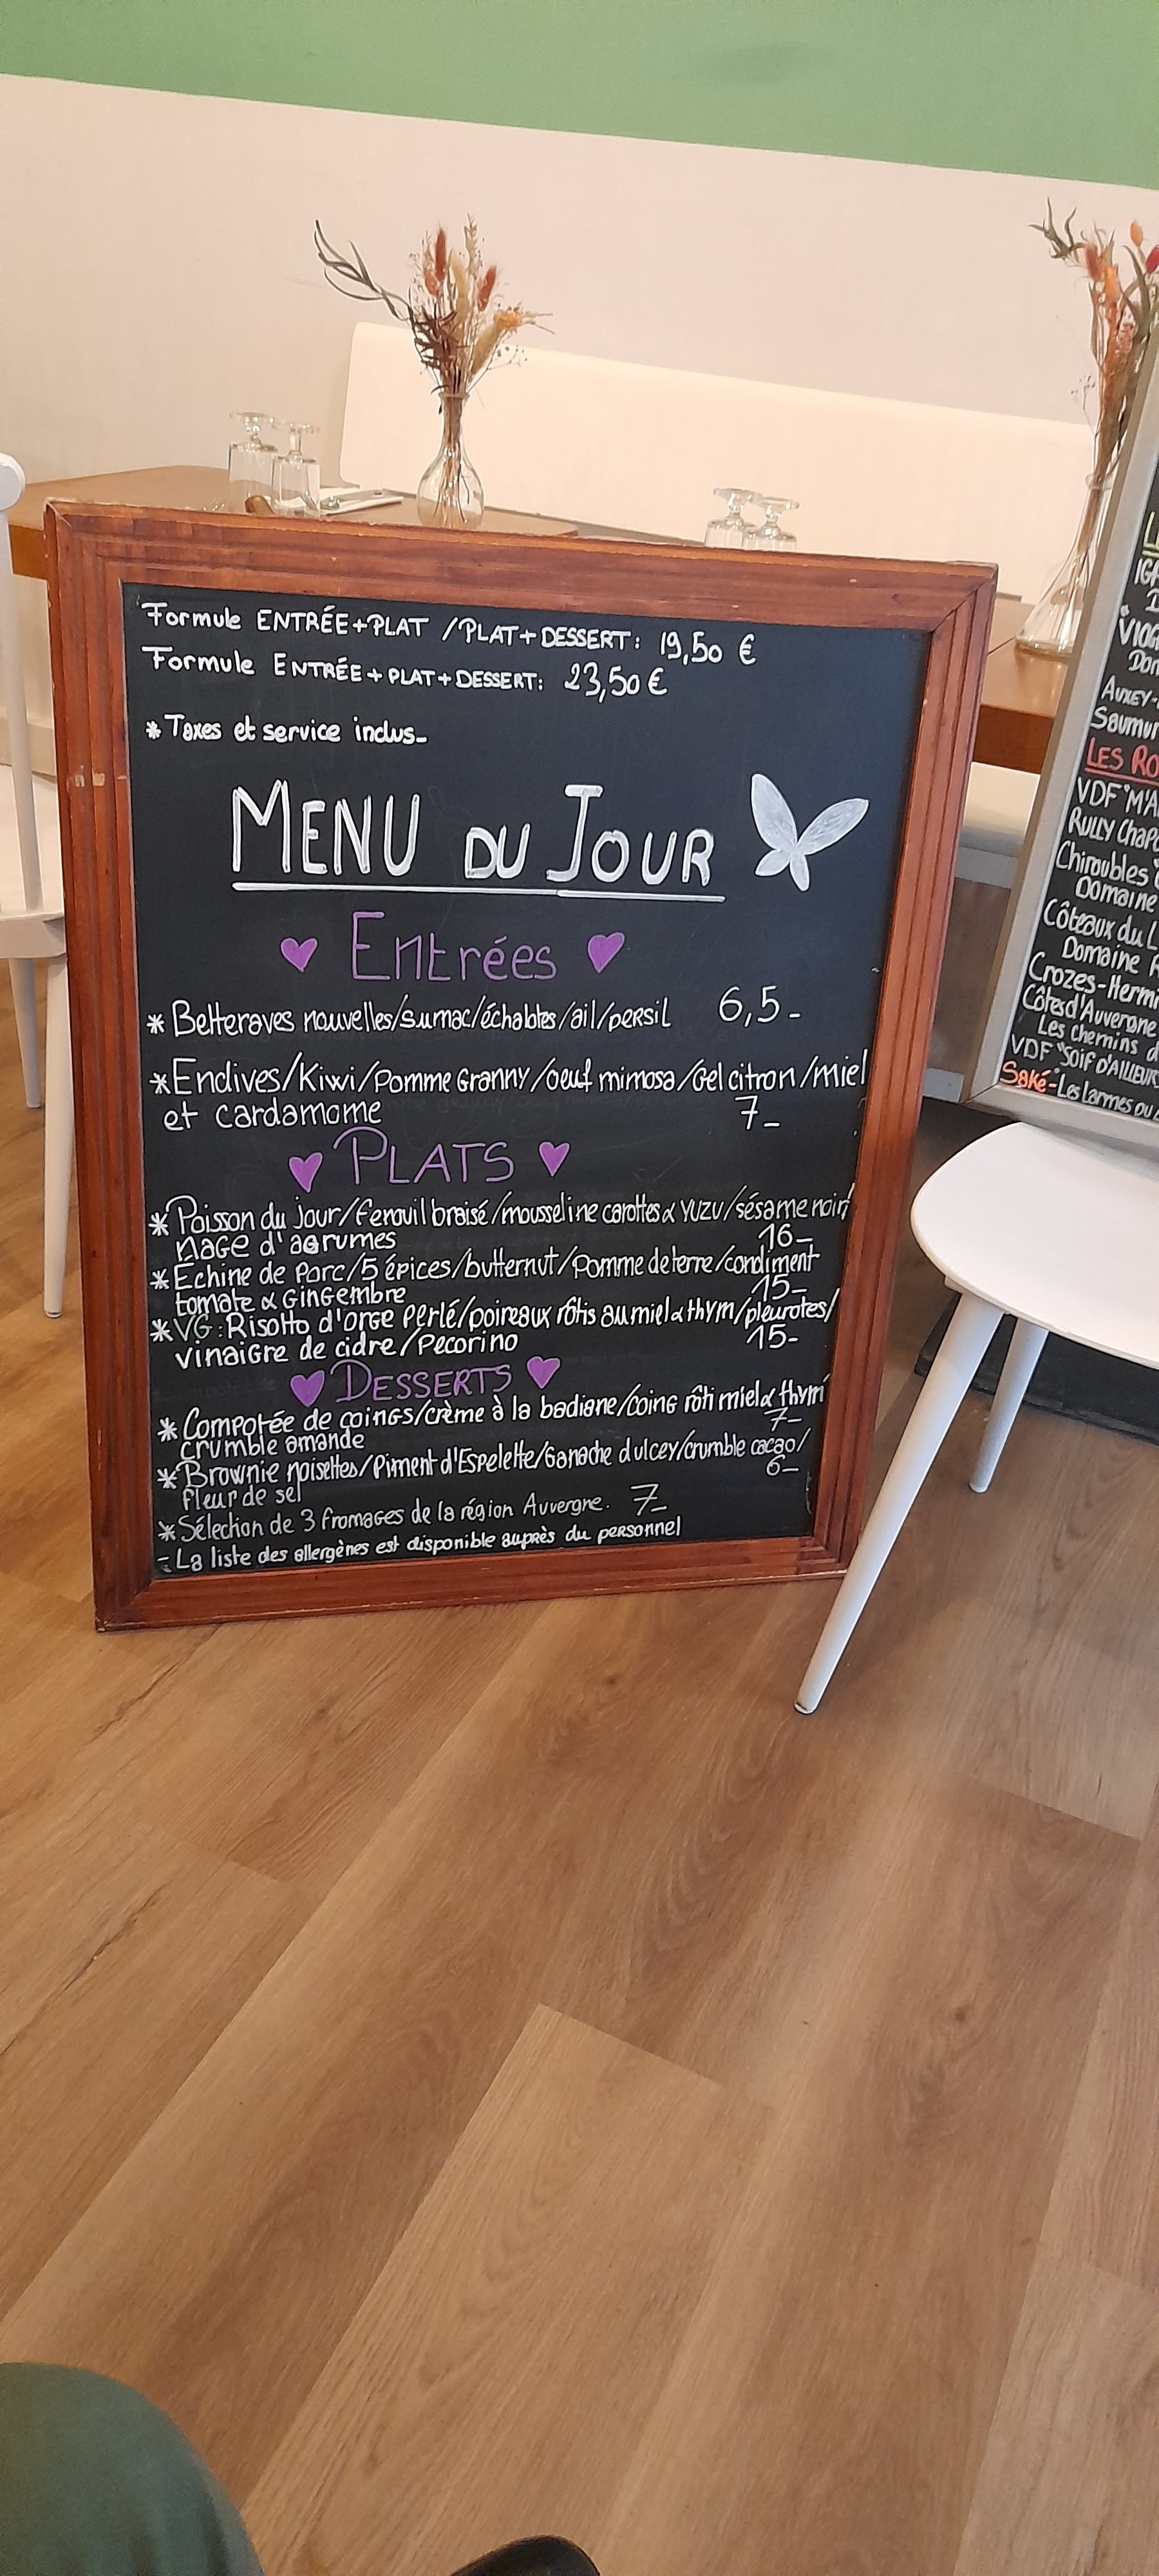 Formule ENTRÉE+PLAT / PLAT+DESSERT: 19,50 €
Formule ENTRÉE+PLAT+DESSERT: 23,50 €
*Taxes et service inclus_
MENU DU JOUR
Entrées
* Betteraves nouvelles/sumac/échalotes/ail/persil 6,5_
*Endives/Kiwi/Pomme Granny/oeuf mimosa/Gel citron/miel
et cardamome 7_
PLATS
* Poisson du jour/Fenouil braisé/mousseline carottes & YUZU/sésame noir/
nage d'agrumes 16_
* Échine de Porc/5 épices/butternut/Pomme de terre/condiment
tomate & Gingembre 15_
*VG: Risotto d'orge Perlé/poireaux rôtis au miel & thym/pleurotes/
vinaigre de cidre/Pecorino 15-
DESSERTS
* Compotée de coings/crème à la badiane/coing rôti miel & thym
crumble amande 7-
* Brownie noisettes/Piment d'Espelette/Ganache dulcey/crumble cacao/
fleur de sel 6_
* Sélection de 3 fromages de la région Auvergne. 7_
- La liste des allergènes est disponible auprès du personnel
Saumur
LES RO
VDF "M'A
RULLY Chap
Chiroubles
Domaine
Côteaux du L
Domaine
Crozes-Hermi
Côtes d'Auvergne
Les chemins d
VDF "SOIF D'AILLEURS
Saké-"Les larmes du